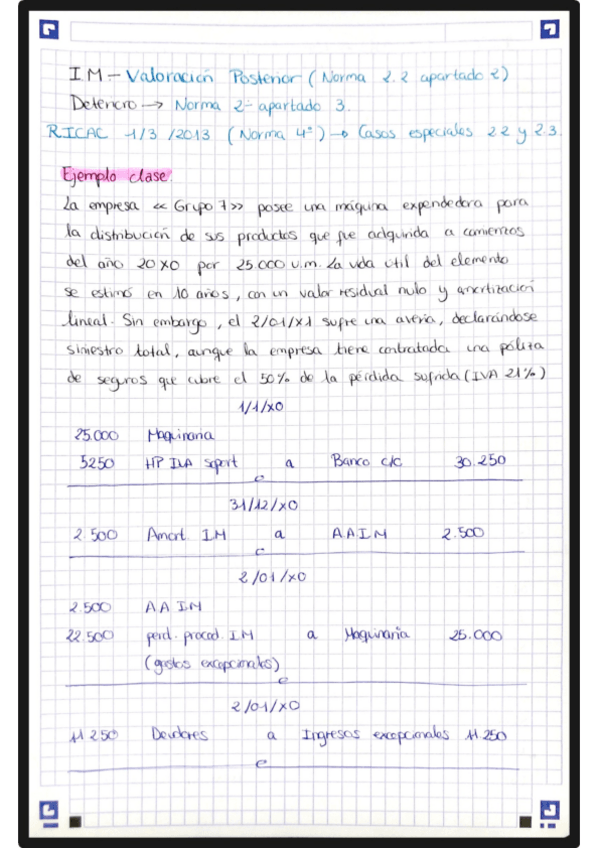 IM - Valoración Posterior (Norma 2.2 apartado 2)
Deterioro → Norma 2ª apartado 3.
RICAC 1/3/2013 (Norma 4ª) → Casos especiales 2.2 y 2.3.
Ejemplo clase:
La empresa << Grupo 7 >> posee una máquina expendedora para
la distribución de sus productos que fue adquirida a comienzos
del año 20X0 por 25.000 u.m. La vida útil del elemento
se estimó en 10 años, con un valor residual nulo y amortización
lineal. Sin embargo, el 2/01/X1 sufre una avería, declarándose
siniestro total, aunque la empresa tiene contratada una póliza
de seguros que cubre el 50% de la pérdida sufrida (IVA 21%)
1/1/X0
25.000 Maquinaria
5250 HP IVA soport a Banco c/c 30.250
31/12/X0
2.500 Amort. IM a AAIM 2.500
2/01/X0
2.500 AA IM
22.500 perd. proced. IM a Maquinaria 25.000
(gastos excepcionales)
2/01/X0
11 250 Deudores a Ingresos excepcionales 11 250